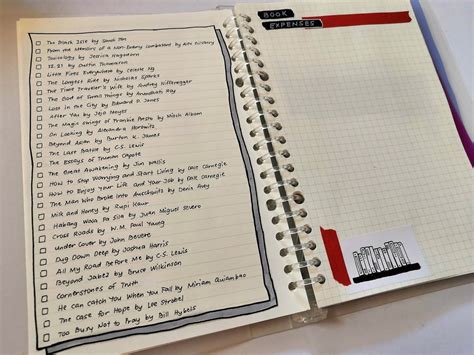 The Black Isle by Sandi Tan
From the Memoirs of a Non-Enemy Combatant by Alex Gilvarry
Toxicology by Jessica Hagedorn
12.21 by Dustin Thomason
Little Fires Everywhere by Celeste Ng
The Longest Ride by Nicholas Sparks
The Time Traveler's Wife by Audrey Niffenegger
The God of Small Things by Arundhati Roy
Lost in the City by Edward P. Jones
After You by Jojo Moyes
The Magic Strings of Frankie Presto by Mitch Albom
On Looking by Alexandra Horowitz
Beyond by Burton K. Janes
The Last Battle by C.S. Lewis
The Essays of Truman Capote
The Great Awakening by Jim Wallis
How to Stop Worrying and Start Living by Dale Carnegie
How to Enjoy Your Life and Your Job by Dale Carnegie
The Man Who Broke Into Auschwitz by Denis Avey
Milk and Honey by Rupi Kaur
Habang Wala Pa Sila by Juan Miguel Severo
Cross Roads by W.M. Paul Young
Under Cover by John Bevere
Dug Down Deep by Joshua Harris
All My Road Before Me by C.S. Lewis
Beyond Jabez by Bruce Wilkinson
Cornerstones of Truth
He can Catch You When You Fall by Miriam Quiambao
The Case for Hope by Lee Strobel
Too Busy Not to Pray by Bill Hybels
BOOK
EXPENSES